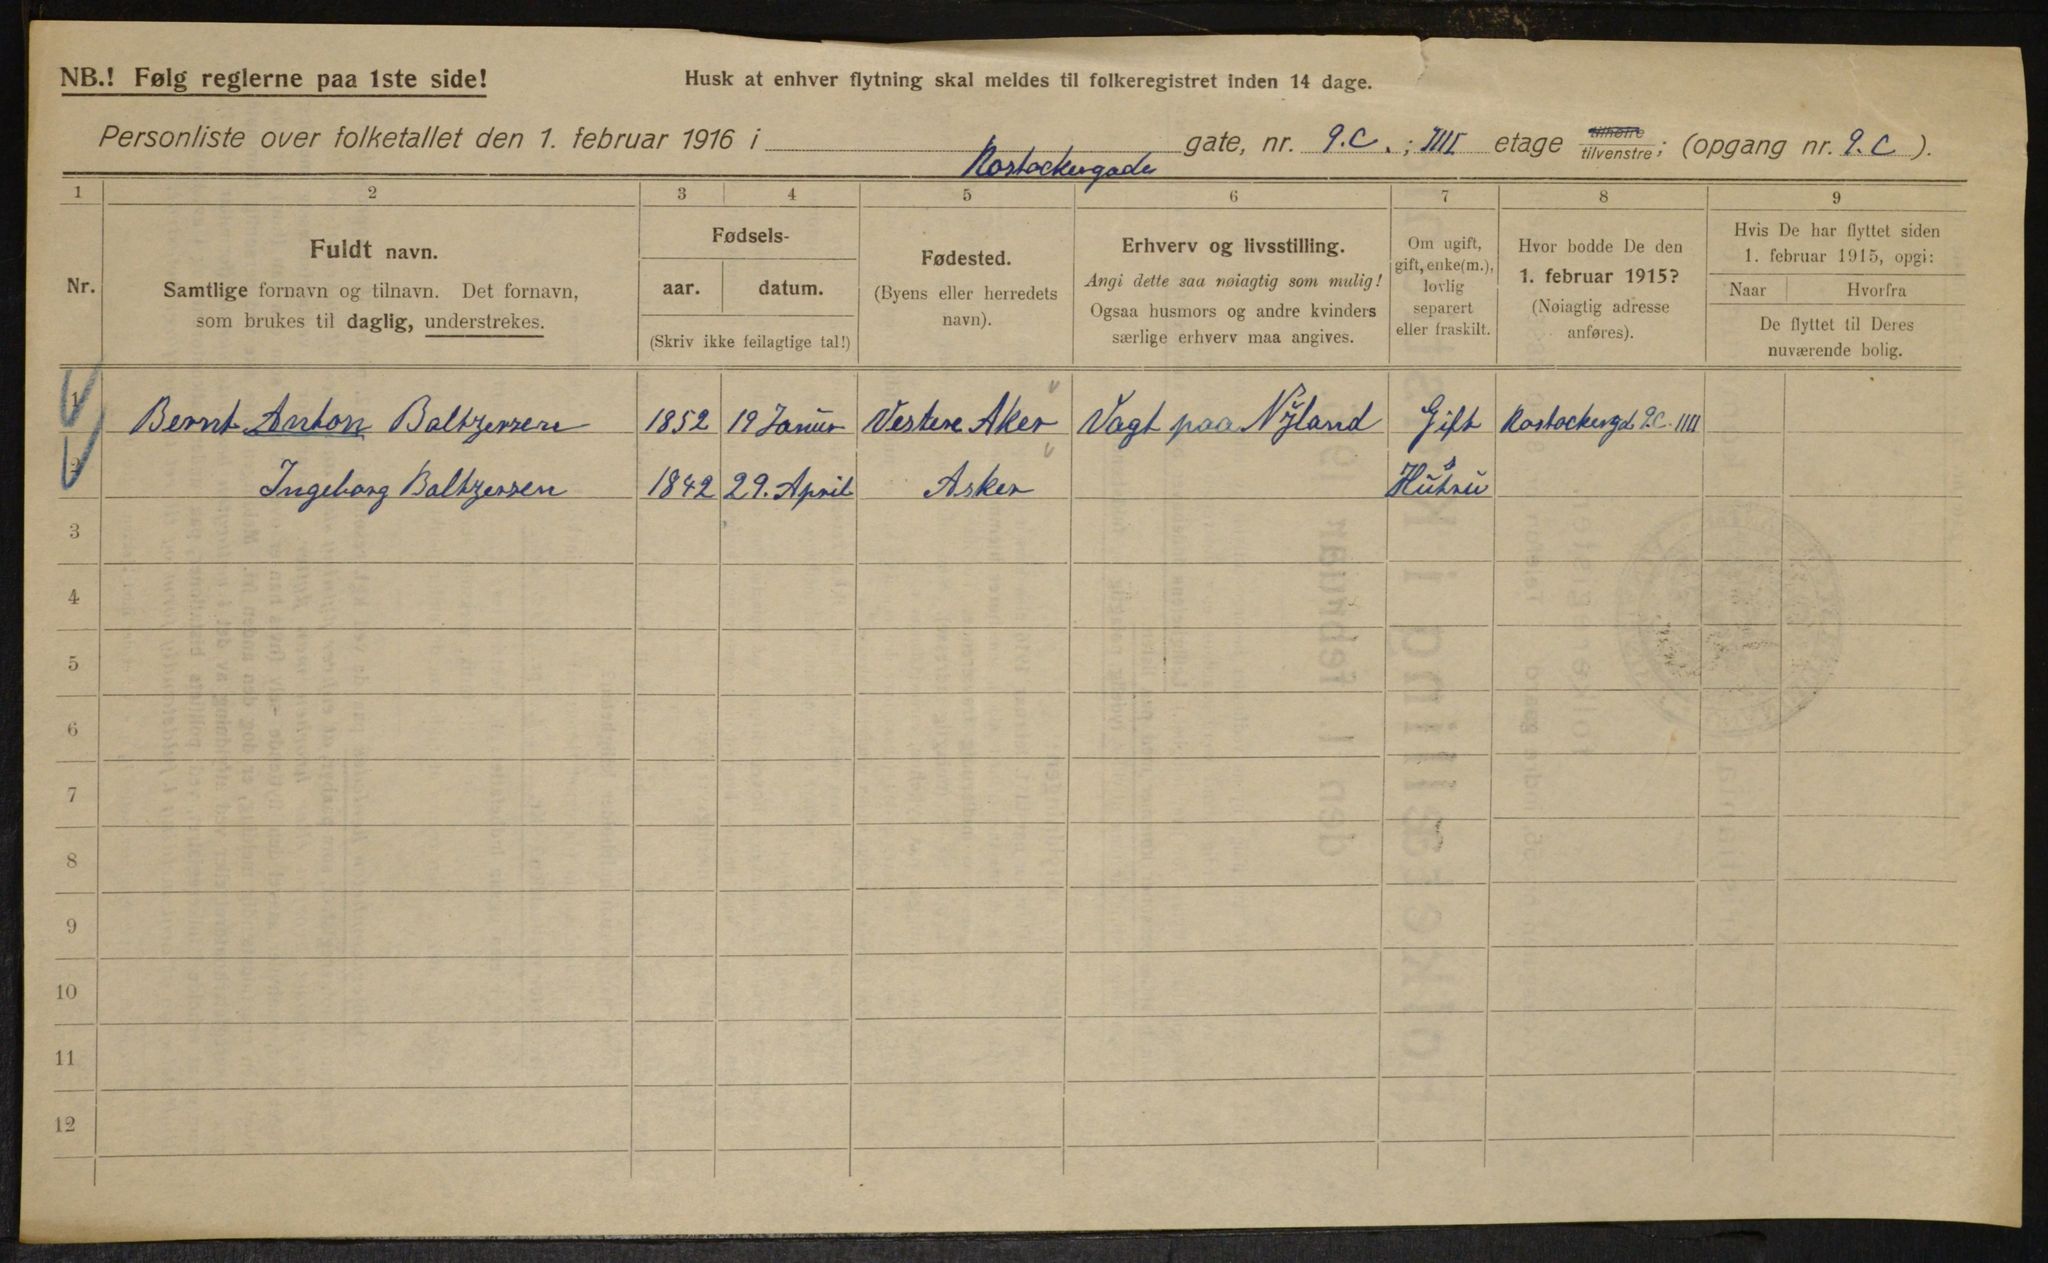 NB.! Følg reglerne paa 1ste side!
Husk at enhver flytning skal meldes til folkeregistret inden 14 dage.
Personliste over folketallet den 1. februar 1916 i Rostockergade gate, nr. 9.C. ; IIII etage tilhøire tilvenstre; (opgang nr. 9.C ).
1 2 3 4 5 6 7 8 9
Nr.
Fuldt navn.
Samtlige fornavn og tilnavn. Det fornavn,
som brukes til daglig, understrekes.
Fødsels-
aar. datum.
(Skriv ikke feilagtige tal!)
Fødested.
(Byens eller herredets
navn).
Erhverv og livsstilling.
Angi dette saa nøiagtig som mulig!
Ogsaa husmors og andre kvinders
særlige erhverv maa angives.
Om ugift,
gift, enke(m.),
lovlig
separert
eller fraskilt.
Hvor bodde De den
1. februar 1915?
(Nøiagtig adresse
anføres).
Hvis De har flyttet siden
1. februar 1915, opgi:
Naar Hvorfra
De flyttet til Deres
nuværende bolig.
1 Bernt Anton Baltzersen 1852 19 Januar Vestere Aker Vagt paa Nyland Gift Rostockergd. 9.C. IIII
2 Ingeborg Baltzersen 1842 29. April Asker Hustru
3
4
5
6
7
8
9
10
11
12